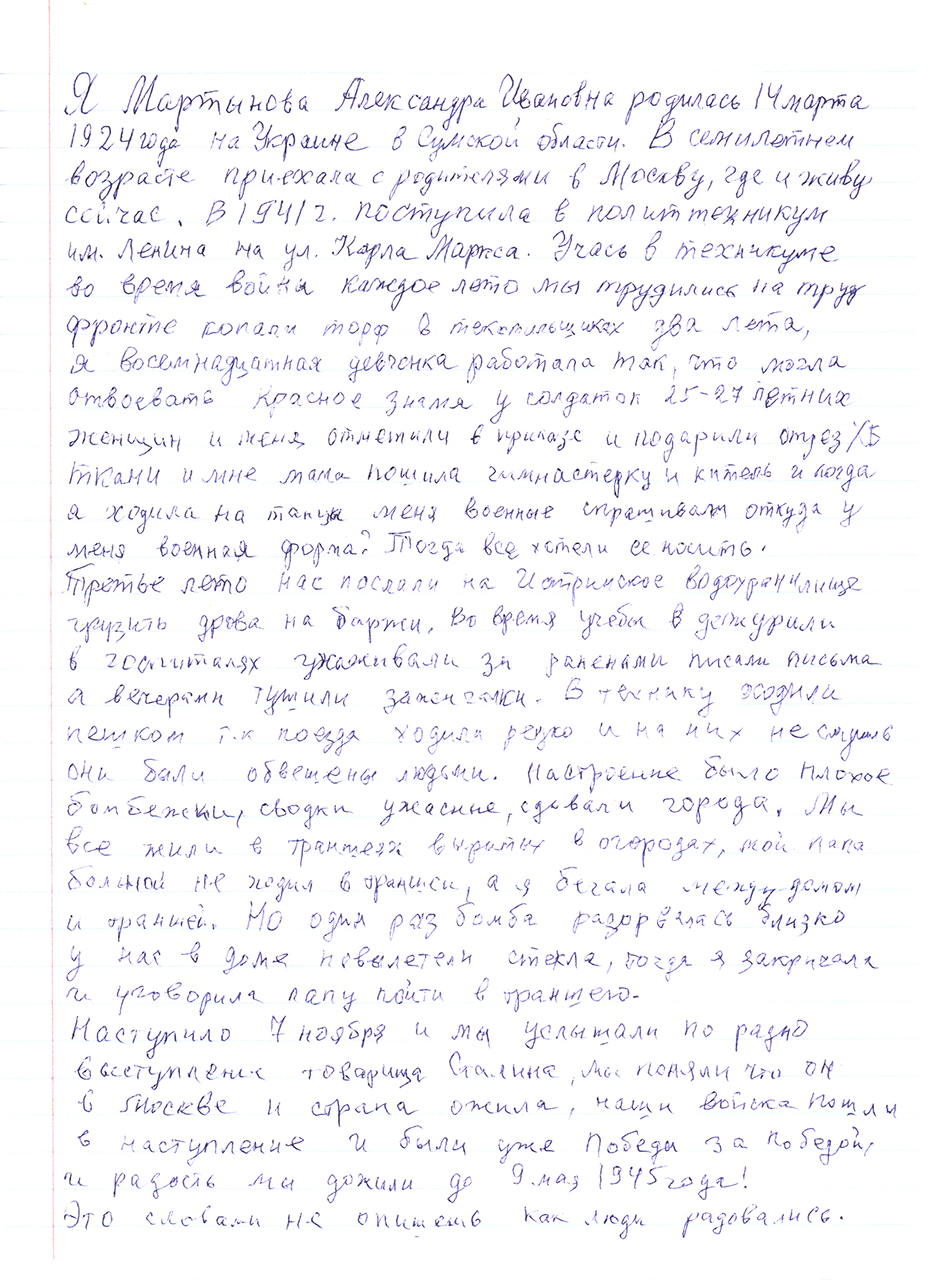 Я Мартынова Александра Ивановна родилась 14 марта
1924 года на Украине в Сумской области. В семилетнем
возрасте приехала с родителями в Москву, где и живу
сейчас. В 1941 г. поступила в политтехникум
им. Ленина на ул. Карла Маркса. Учась в техникуме
во время войны каждое лето мы трудились на труд
фронте копали торф в текстильщиках два лета,
я восемнадцатная девчонка работала так, что могла
отвоевать красное знамя у солдаток 25-27 летних
женщин и меня отметили в приказе и подарили отрез Х/Б
ткани и мне мама пошила гимнастерку и китель и когда
я ходила на танцы меня военные спрашивали откуда у
меня военная форма? Тогда все хотели ее носить.
Третье лето нас послали на Истринское водохранилище
грузить дрова на баржи, во время учебы в дежурили
в госпиталях ухаживали за ранеными писали письма
а вечерами тушили зажигалки. В технику ходили
пешком т.к поезда ходили редко и на них не
они были обвешены людьми. Настроение было плохое
бомбежки, сводки ужасные, сдавали города. Мы
все жили в траншеях вырытых в огородах, мой папа
больной не ходил в траншеи, а я бегала между домом
и траншей. Но один раз бомба разорвалась близко
у нас в доме повылетели стекла, тогда я закричала
и уговорила папу пойти в траншею.
Наступило 7 ноября и мы услышали по радио
выступление товарища Сталина, мы поняли что он
в Москве и страна ожила, наши войска пошли
в наступление и были уже Победы за победой,
и радость мы дожили до 9 мая 1945 года!
Это словами не опишешь как люди радовались.